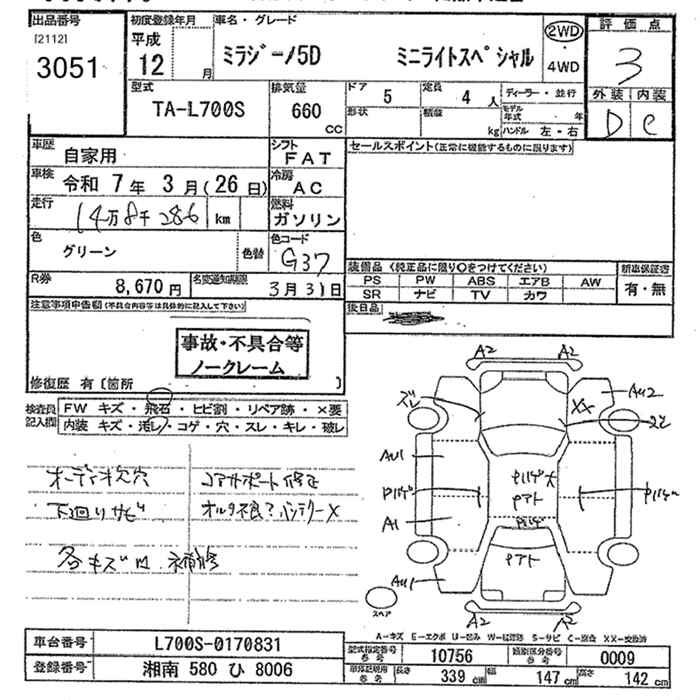 出品番号
[2112]
3051
初度登録年月
平成
12 月
車名・グレード
ミラジーノ5D ミニライトスペシャル
2WD
・
4WD
評価点
3
外装 内装
D C
型式
TA-L700S
排気量
660
CC
ドア 5
定員 4 人
ディーラー・並行
形状
積載 kg
モデル年式 年
ハンドル 左・右
車歴
自家用
シフト
FAT
セールスポイント(正常に機能するものに限ります)
車検 令和 7年 3月(26日)
冷房
AC
走行
14万8千286 km
燃料
ガソリン
色
グリーン
色替
色コード
G37
装備品 (純正品に限り○をつけてください)
新車保証書
PS PW ABS エアB AW
有・無
SR ナビ TV カワ
R券
8,670円
名変通知期限
3月31日
後日品
注意事項申告欄(不具合内容等は具体的に記入して下さい)
事故・不具合等
ノークレーム
修復歴 有〔箇所 〕
検査員
記入欄
FW キズ・飛石・ヒビ割・リペア跡・×要
内装 キズ・汚レ・コゲ・穴・スレ・キレ・破レ
オーディオ欠穴
コアサポート修正
下廻りサビ
オルタ不良?バッテリーX
各キズ凹、補修
A2 A2
ズレ
XX
AU2
AU1
A1
AU1
Pアト
Pアト
A2 A2
スペア
A-キズ E-エクボ U-凹み W-補修跡 S-サビ C-腐食 XX-交換済
車台番号
L700S-0170831
登録番号
湘南 580 ひ 8006
型式指定番号
参考
10756
類別区分番号
参考
0009
車体記載用
参考
長さ 339 cm
幅 147 cm
高さ 142 cm